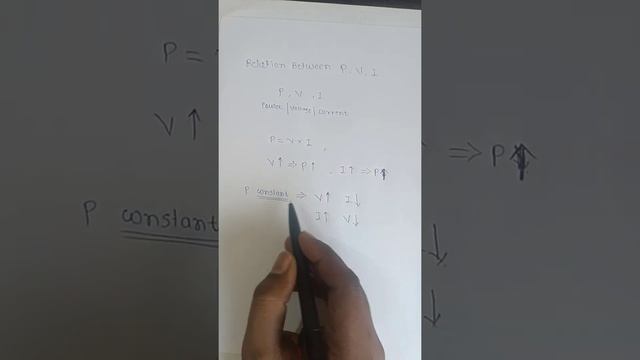 Relation Between P, V, I
P, V, I
Power / Voltage / current
P = V × I ,
V↑ ⇒ P↑ , I↑ ⇒ P↑
P constant ⇒ V↑ I↓
I↑ V↓